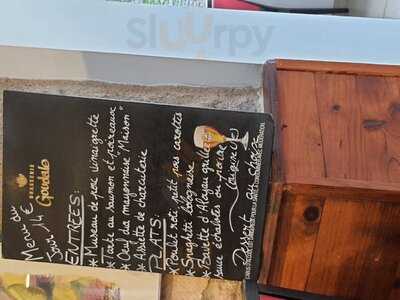 Sluurpy
BRASSERIE
Goudale
Menu du
Jour 14 €
ENTRÉES:
* Museau de porc vinaigrette
* Tarte au saumon et poireaux
* Oeuf dur mayonnaise "Maison"
* Assiette de charcuterie
PLATS:
* Poulet roti petit pois carottes
* Spaghetti bolognaise
* Bavette d'Aloyau grillée
sauce échalotes ou poivre
Dessert au choix